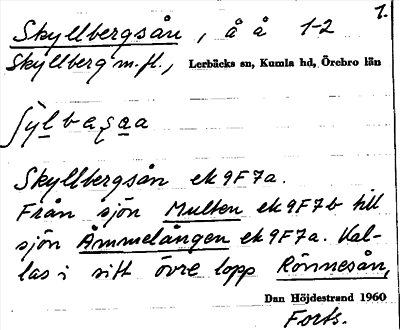 1.
Skyllbergsån, å å 1-2
Skyllberg m.fl., Lerbäcks sn, Kumla hd, Örebro län
Skyllbergsån ek 9F7a.
Från sjön Multen ek 9F7b till
sjön Åmmelången ek 9F7a. Kal-
las i sitt övre lopp Rönnesån,
Dan Höjdestrand 1960
Forts.